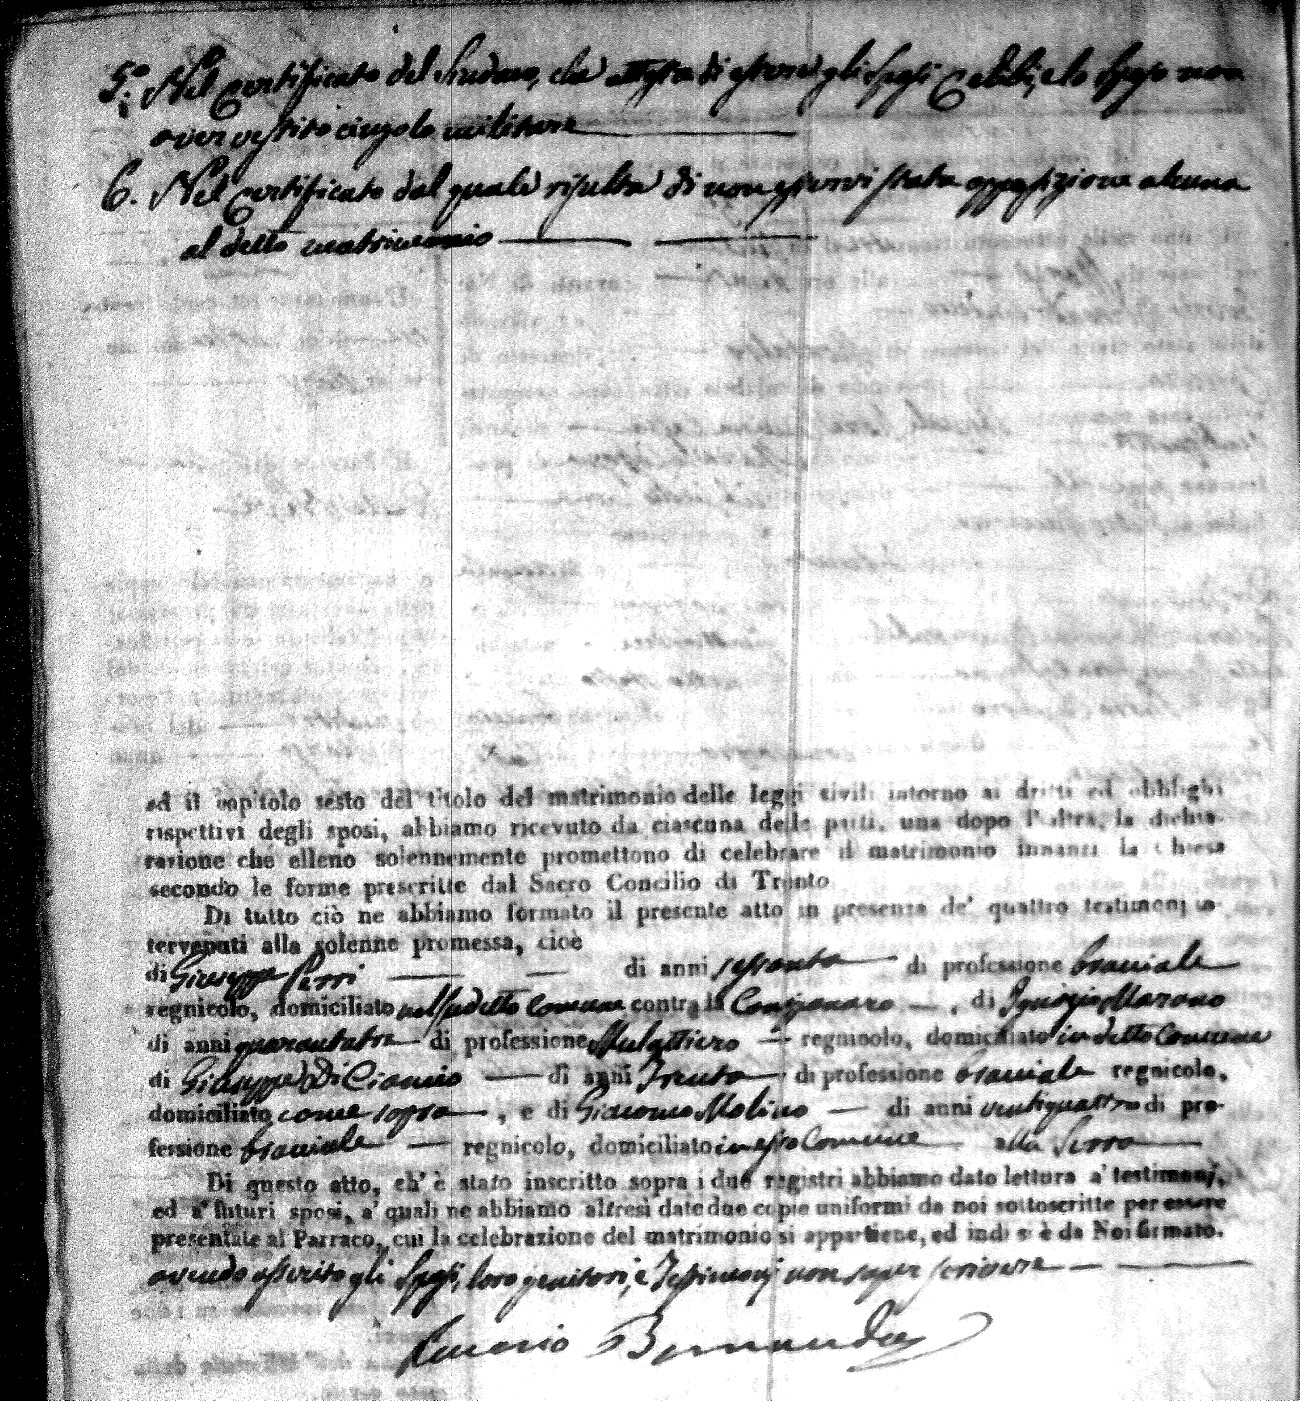 5.° Nel Certificato del Sindaco, che attesta di essere gli Sposi Celibi, e lo Sposo non
aver vestito cingolo militare
6. Nel Certificato dal quale risulta di non esservi stata opposizione alcuna
al detto matrimonio
ed il capitolo sesto del titolo del matrimonio delle leggi civili intorno ai dritti ed obblighi
rispettivi degli sposi, abbiamo ricevuto da ciascuna delle parti, una dopo l'altra, la dichia-
razione che elleno solennemente promettono di celebrare il matrimonio innanzi la Chiesa
secondo le forme prescritte dal Sacro Concilio di Trento
Di tutto ciò ne abbiamo formato il presente atto in presenza de' quattro testimonj in-
tervenuti alla solenne promessa, cioè
di Giuseppe Perri di anni sessanta di professione bracciale
regnicolo, domiciliato nel sudetto Comune contra la , di Ignazio Marano
di anni quarantatre di professione Mulattiero regnicolo, domiciliato in detto Comune
di Giuseppe Di Ciannio di anni Trenta di professione bracciale regnicolo,
domiciliato come sopra , e di Giacomo Molino di anni ventiquattro di pro-
fessione bracciale regnicolo, domiciliato in esso Comune alla Serra
Di questo atto, ch' è stato inscritto sopra i due registri abbiamo dato lettura a' testimonj,
ed a' futuri sposi, a' quali ne abbiamo altresì date due copie uniformi da noi sottoscritte per essere
presentate al Parraco, cui la celebrazione del matrimonio si appartiene, ed indi s' è da Noi firmato.
avendo asserito gli Sposi, loro genitori, e Testimonj non saper scrivere